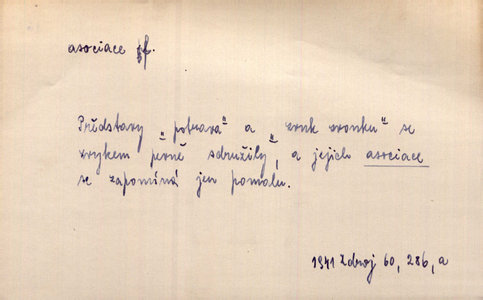 asociace f.
Představy „potrava" a „zvuk zvonku" se
zvykem pevně sdružily, a jejich asociace
se zapomíná jen pomalu.
1941 Zdroj 60, 286, a